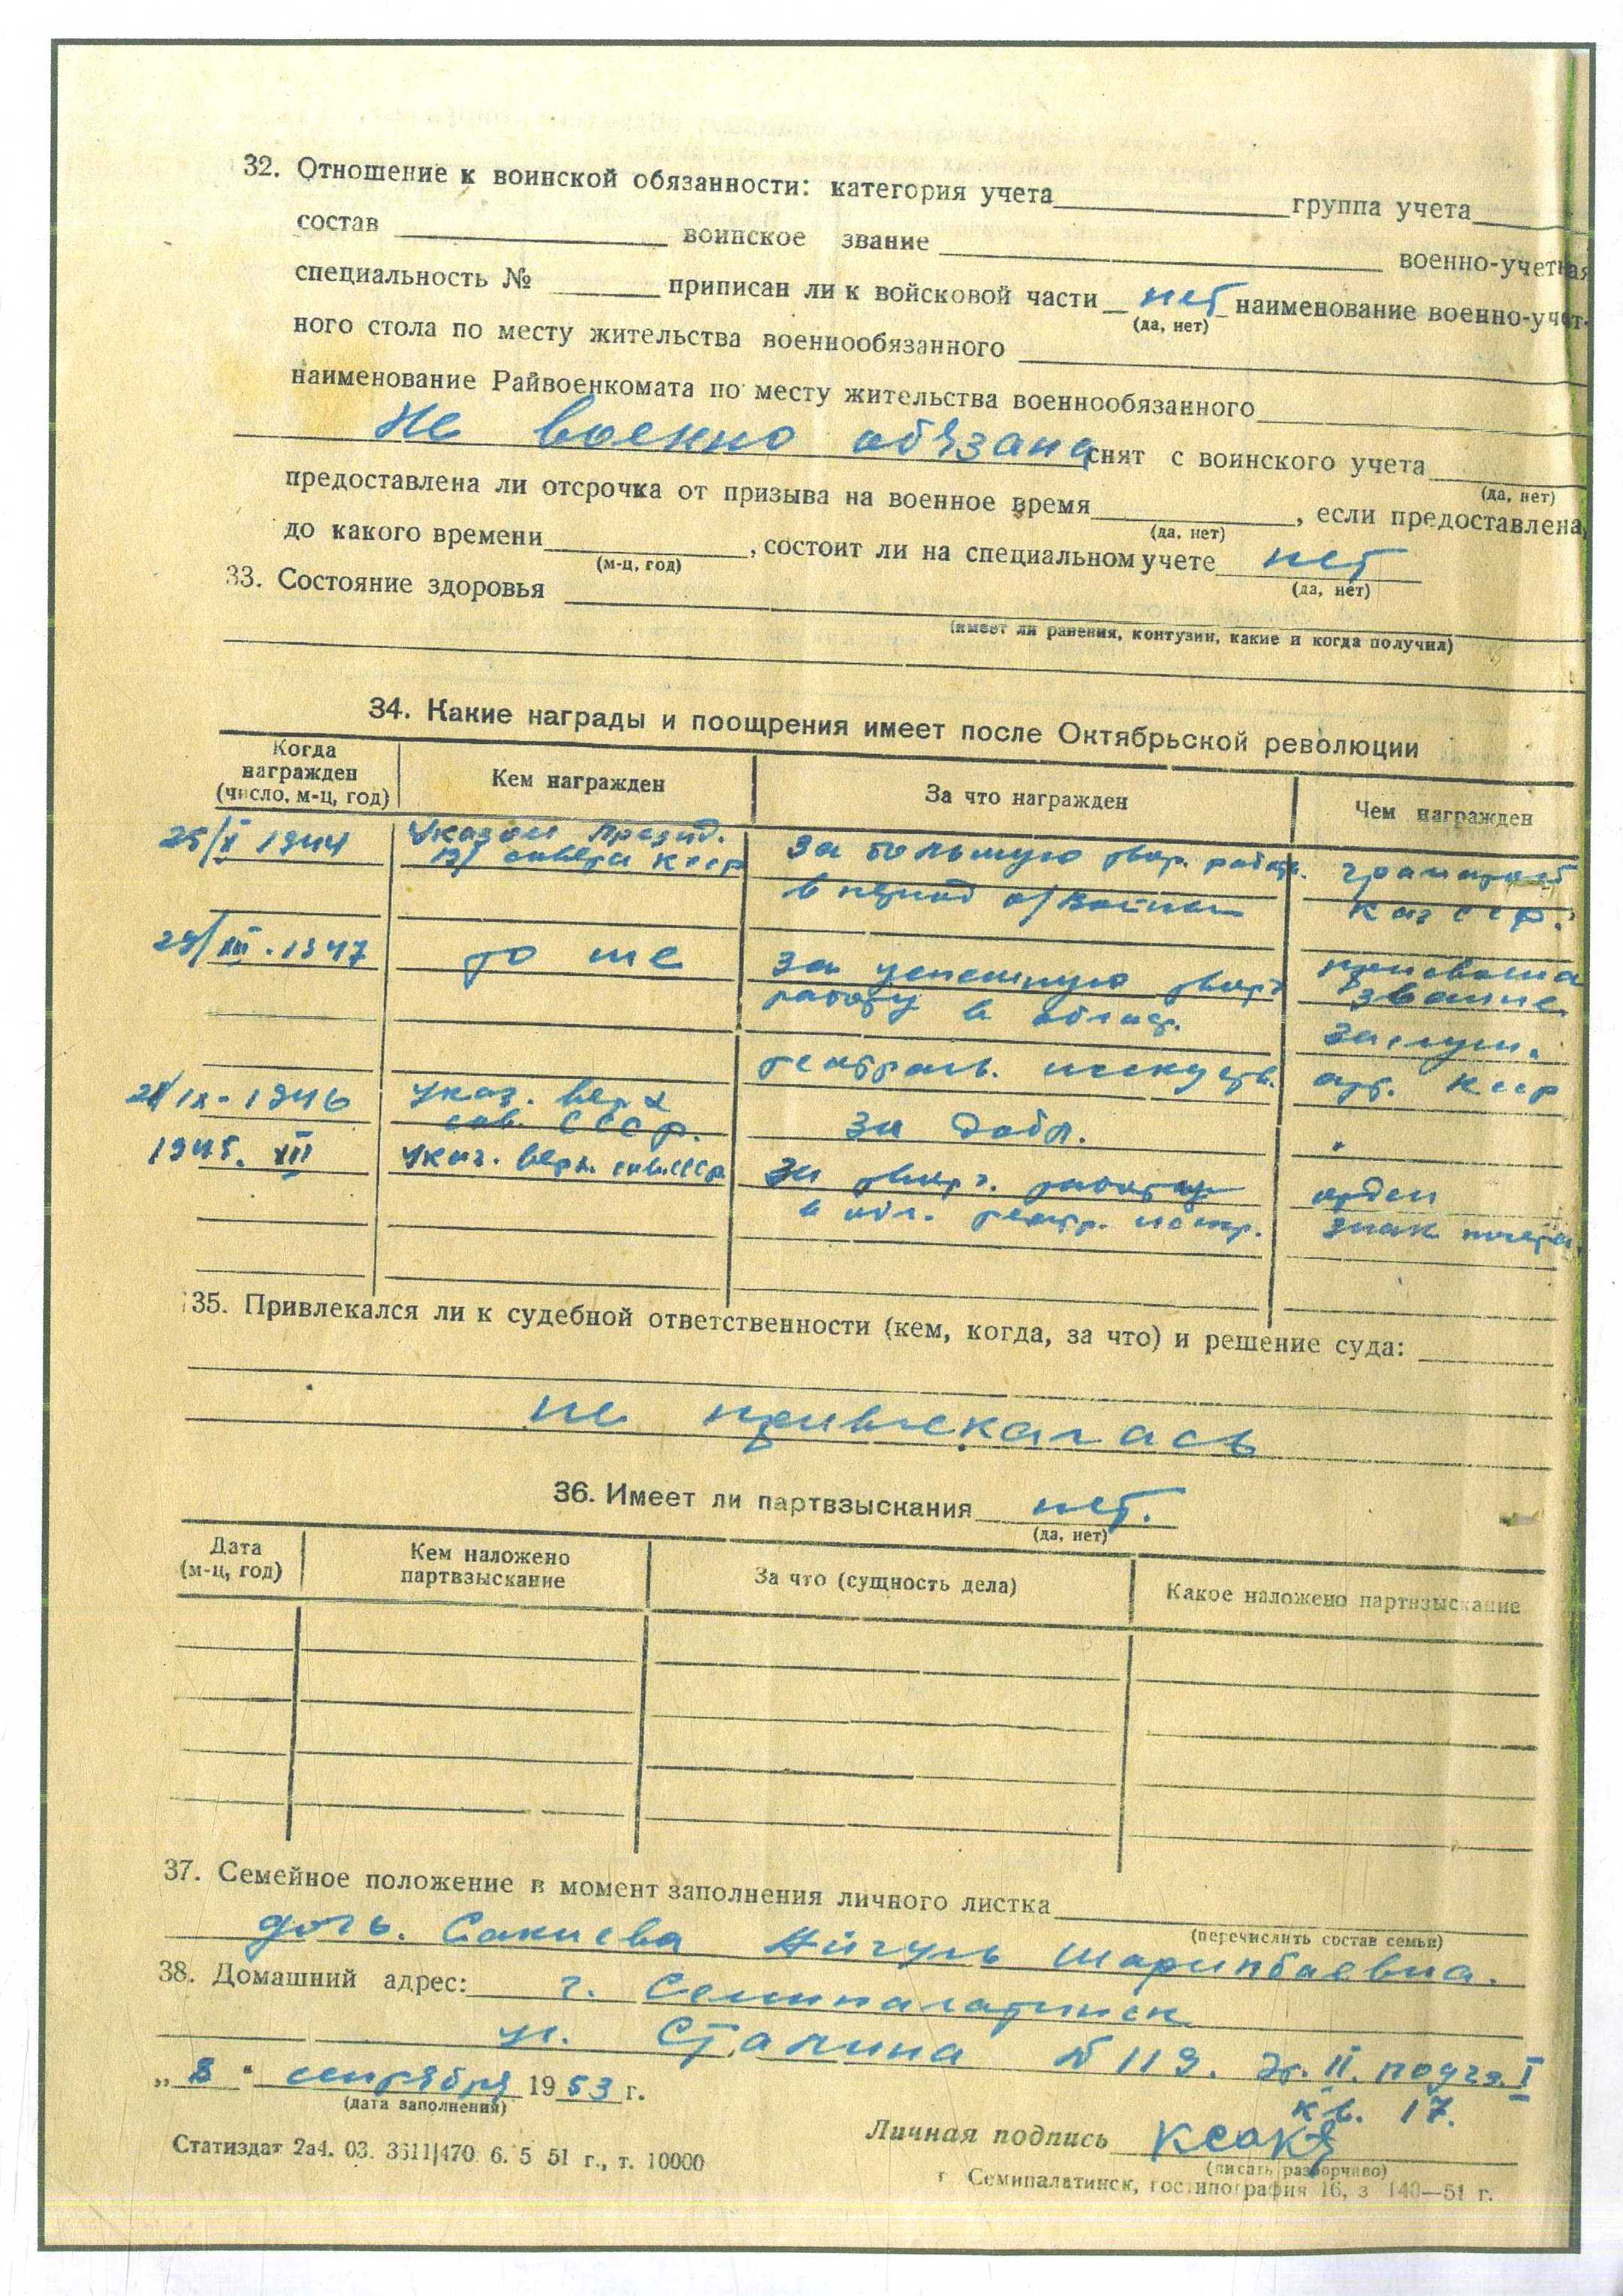 32. Отношение к воинской обязанности: категория учета группа учета
состав воинское звание военно-учетная
специальность № приписан ли к войсковой части нет наименование военно-учет-
(да, нет)
ного стола по месту жительства военнообязанного
наименование Райвоенкомата по месту жительства военнообязанного
Не военно обязана снят с воинского учета
(да, нет)
предоставлена ли отсрочка от призыва на военное время , если предоставлена,
(да, нет)
до какого времени , состоит ли на специальном учете нет
(м-ц, год) (да, нет)
33. Состояние здоровья
(имеет ли ранения, контузии, какие и когда получил)
34. Какие награды и поощрения имеет после Октябрьской революции
Когда награжден (число, м-ц, год) Кем награжден За что награжден Чем награжден
25/X 1944 Указом Презид. за большую твор. работу грамотой
в период о/войны Каз ССР.
29/XII. 1947 то же за успешную твор. присвоено
работу в област. звание
театральн. искуств. заслуж.
арт. КССР
IX - 1946 Указ. Верх за добл.
сов. СССР.
1945. XII Указ. Верх. сов. СССР за твор. работу орден
в обл. театр. искус. знак почета
35. Привлекался ли к судебной ответственности (кем, когда, за что) и решение суда:
не привлекалась
36. Имеет ли партвзыскания нет.
(да, нет)
Дата (м-ц, год) Кем наложено партвзыскание За что (сущность дела) Какое наложено партвзыскание
37. Семейное положение в момент заполнения личного листка
(перечислить состав семьи)
дочь. Сакиева Айгуль Шарипбаевна.
38. Домашний адрес: г. Семипалатинск
ул. Сталина № 119. эт. II. подъз. I
кв. 17.
„ 8 " сентября 1953 г.
(дата заполнения)
Личная подпись
(писать разборчиво)
Статиздат 2а4. 03. 3611|470 6. 5 51 г., т. 10000
г Семипалатинск, гостипография 16, з 140—51 г.